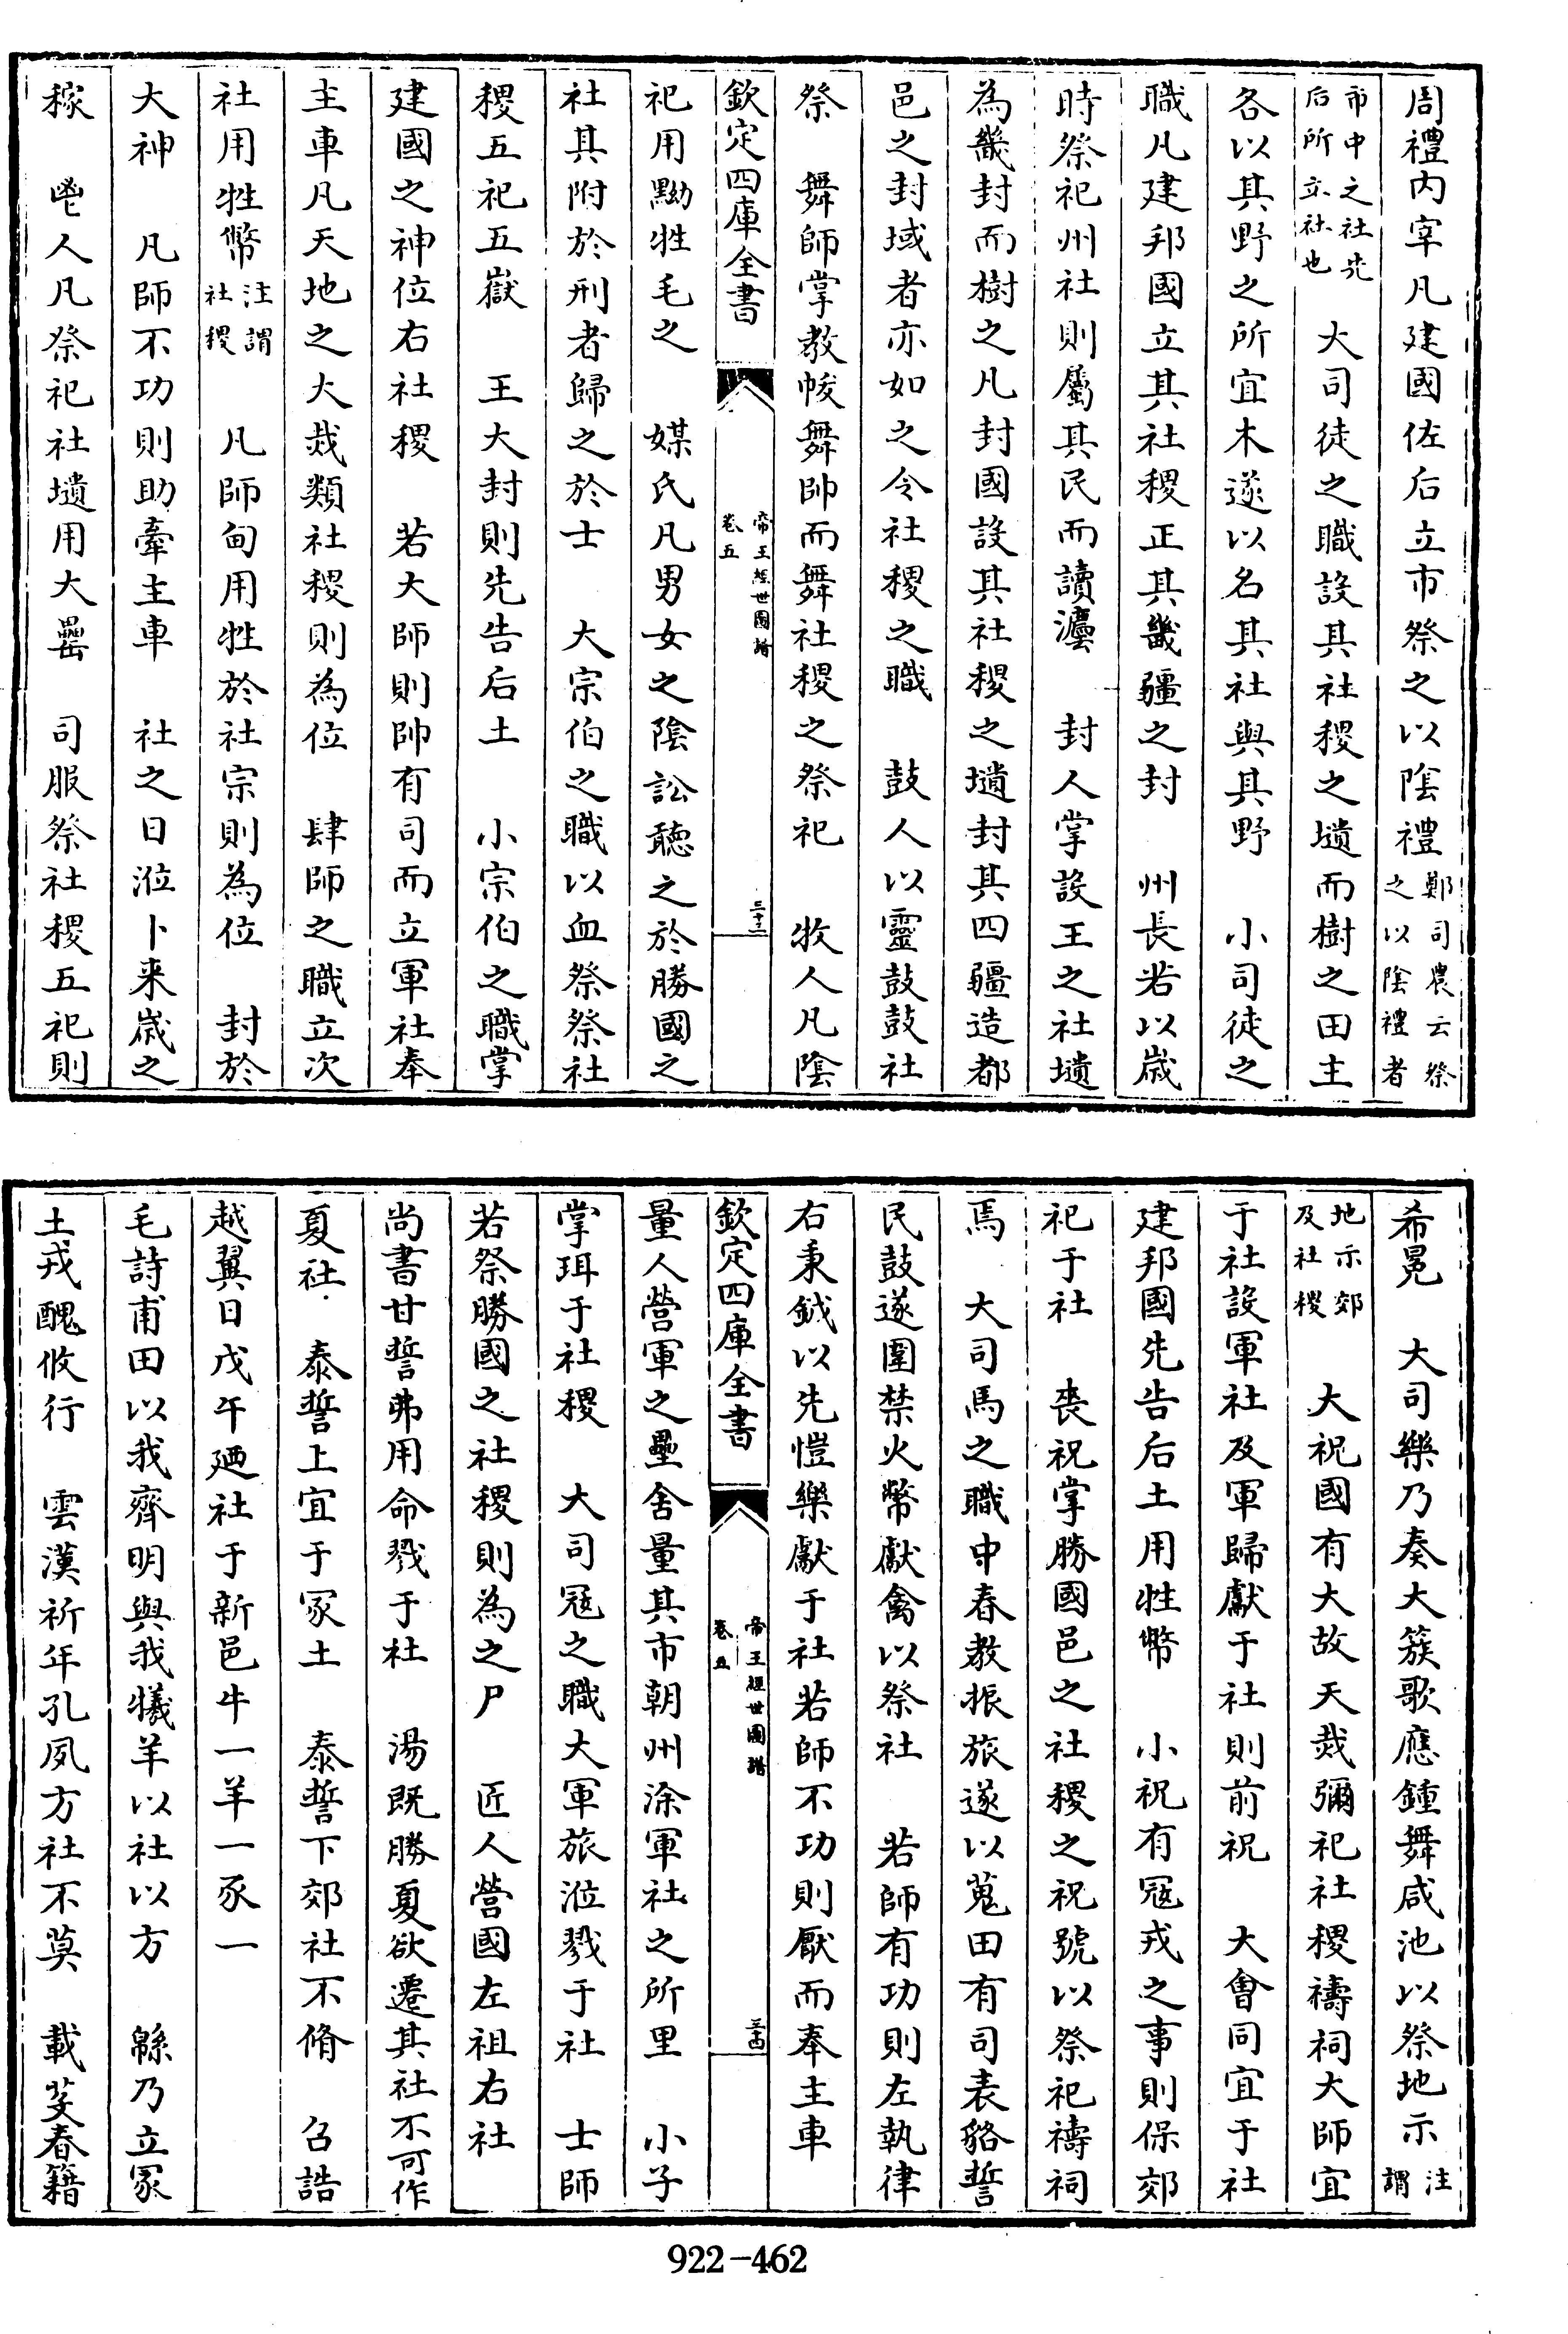 周禮内宰凡建國佐后立市祭之以陰禮鄭司農云祭之以陰禮者
市中之社先后所立社也　大司徒之職設其社稷之壝而樹之田主
各以其野之所宜木遂以名其社與其野　小司徒之
職凡建邦國立其社稷正其畿疆之封　州長若以歲
時祭祀州社則屬其民而讀灋　封人掌設王之社壝
為畿封而樹之凡封國設其社稷之壝封其四疆造都
邑之封域者亦如之令社稷之職　鼓人以靈鼓鼓社
祭　舞師掌教帗舞帥而舞社稷之祭祀　牧人凡陰
欽定四庫全書　帝王經世圖譜　卷五　三十三
祀用黝牲毛之　媒氏凡男女之陰訟聽之於勝國之
社其附於刑者歸之於士　大宗伯之職以血祭祭社
稷五祀五嶽　王大封則先告后土　小宗伯之職掌
建國之神位右社稷　若大師則帥有司而立軍社奉
主車凡天地之大烖類社稷則為位　肆師之職立次
社用牲幣注謂社稷　凡師甸用牲於社宗則為位　封於
大神　凡師不功則助牽主車　社之日涖卜来歲之
稼　鬯人凡祭祀社壝用大罍　司服祭社稷五祀則
希冕　大司樂乃奏大簇歌應鍾舞咸池以祭地示注謂
地示郊及社稷　大祝國有大故天烖彌祀社稷禱祠大師宜
于社設軍社及軍歸獻于社則前祝　大會同宜于社
建邦國先告后土用牲幣　小祝有冦戎之事則保郊
祀于社　喪祝掌勝國邑之社稷之祝號以祭祀禱祠
焉　大司馬之職中春教振旅遂以蒐田有司表貉誓
民鼓遂圍禁火幣獻禽以祭社　若師有功則左執律
右秉鉞以先愷樂獻于社若師不功則厭而奉主車
欽定四庫全書　帝王經世圖譜　卷五　三十四
量人營軍之壘舍量其市朝州涂軍社之所里　小子
掌珥于社稷　大司冦之職大軍旅涖戮于社　士師
若祭勝國之社稷則為之尸　匠人營國左祖右社
尚書甘誓弗用命戮于社　湯既勝夏欲遷其社不可作
夏社　泰誓上宜于冢土　泰誓下郊社不脩　召誥
越翼日戊午廼社于新邑牛一羊一豕一
毛詩甫田以我齊明與我犧羊以社以方　緜乃立冢
土戎醜攸行　雲漢祈年孔夙方社不莫　載芟春籍
922-462